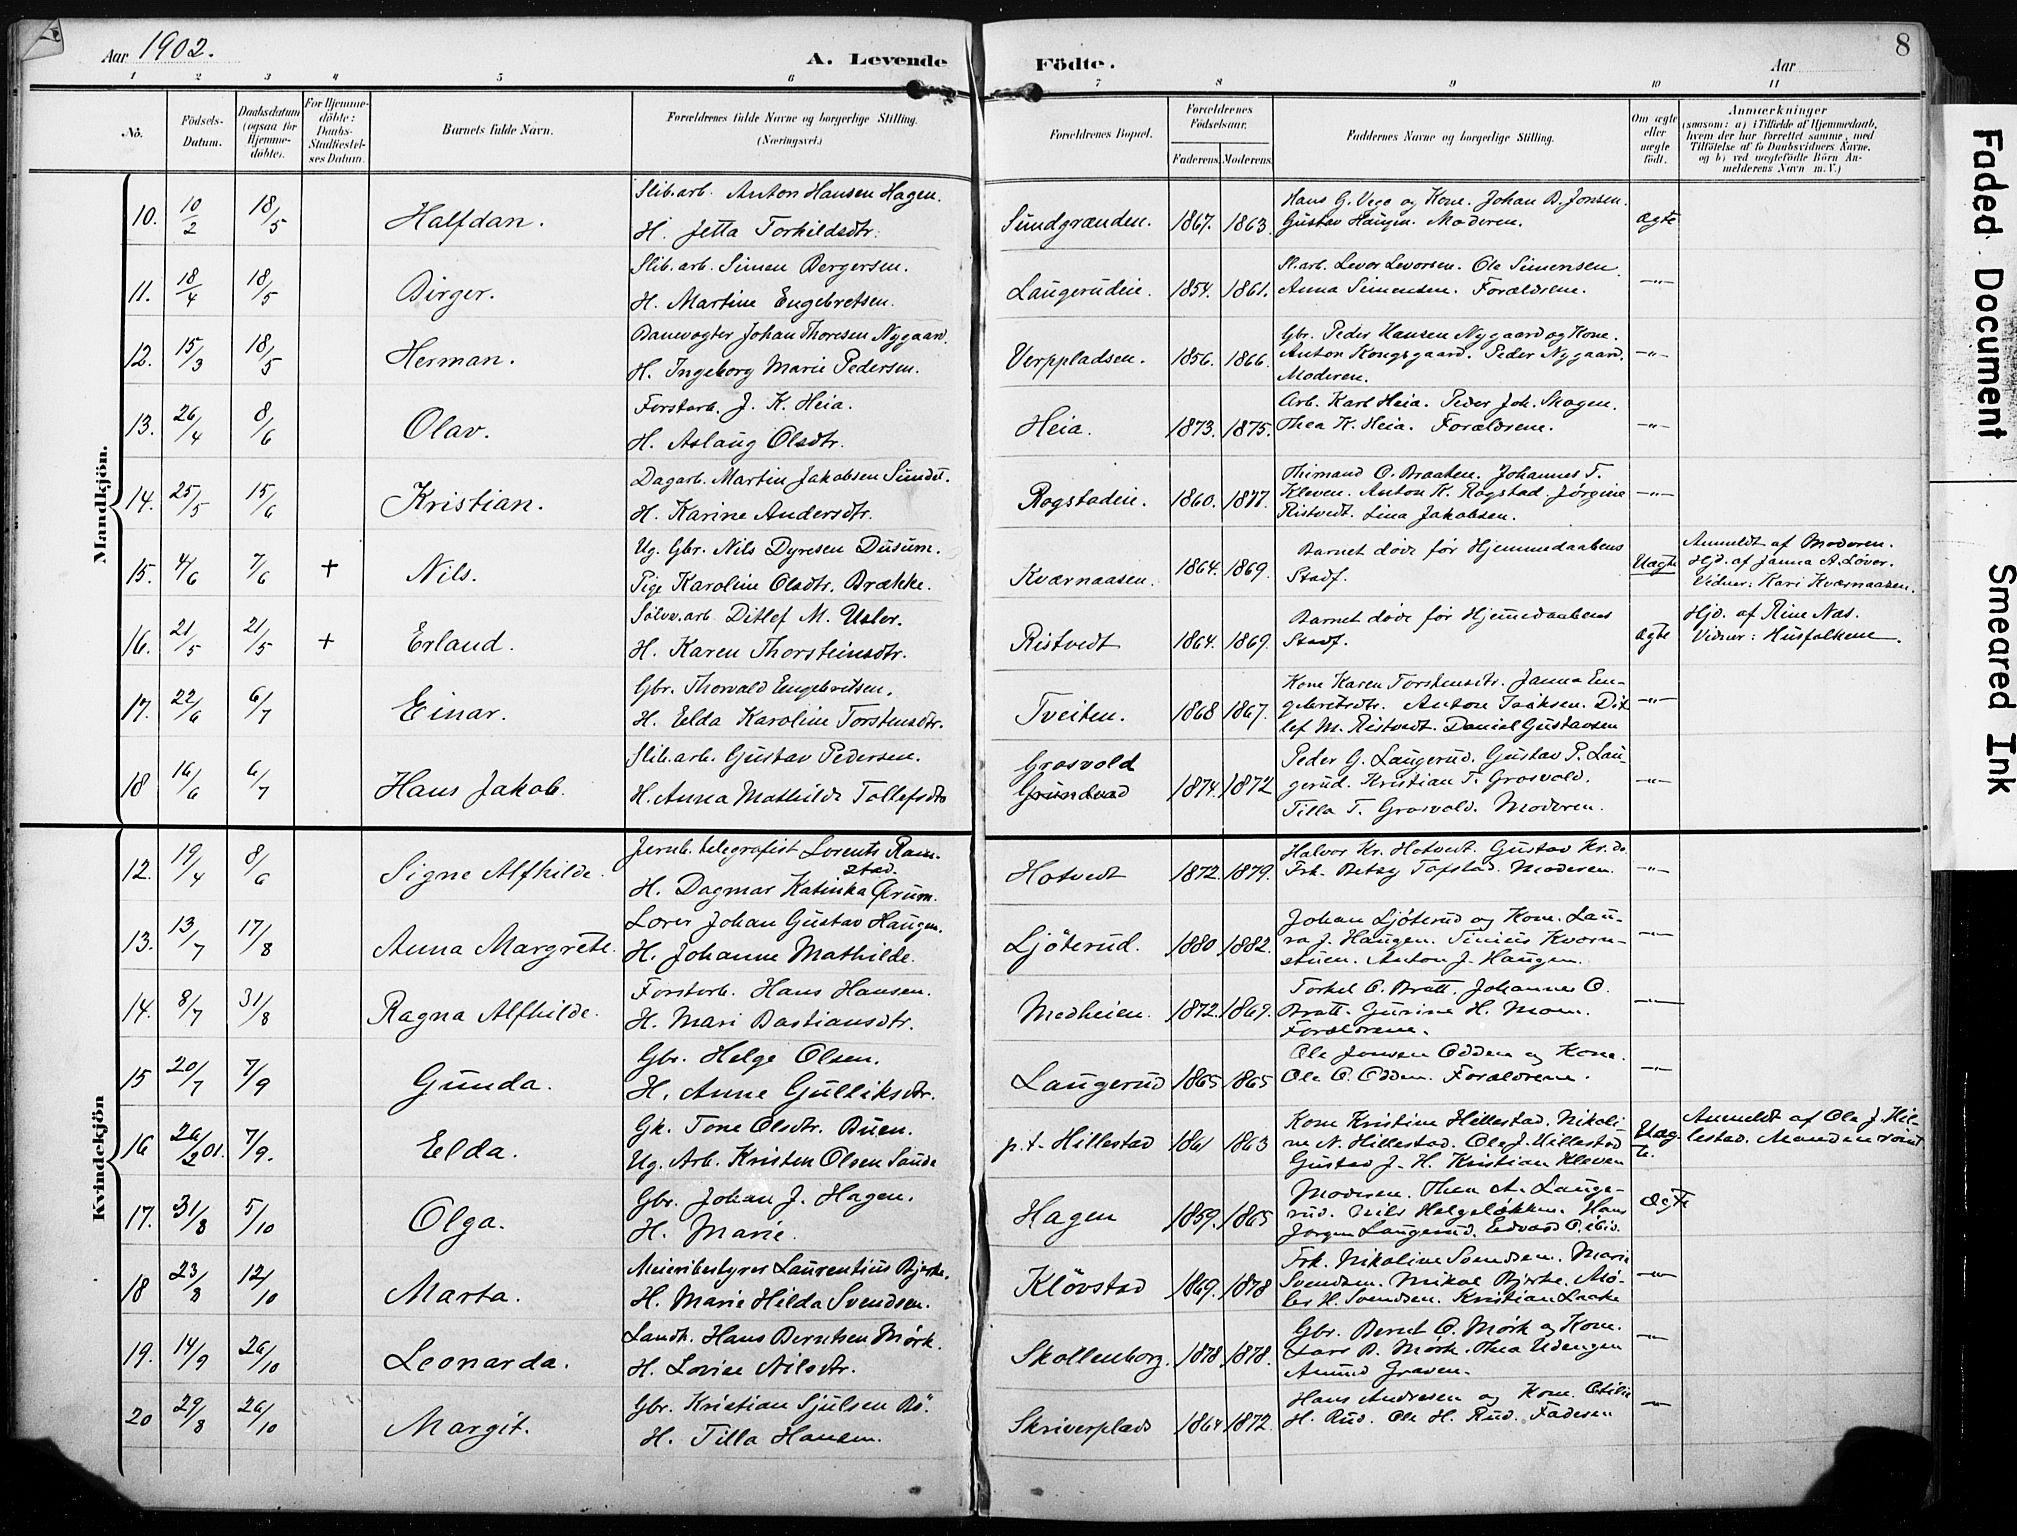 Aar 1902.
A. Levende
Födte.
Aar
8
1 2 3 4 5 6 7 8 9 10 11
No.
Födsels-
Datum.
Daabsdatum
(ogsaa for
Hjemme-
döbte).
For Hjemme-
döbte:
Daabs-
Stadfæstel-
ses Datum.
Barnets fulde Navn.
Forældrenes fulde Navne og borgerlige Stilling.
(Næringsvei.)
Forældrenes Bopæl.
Forældrenes
Födselsaar.
Faderens. Moderens.
Faddernes Navne og borgerlige Stilling.
Om ægte
eller
uægte
födt.
Anmærkninger
(saasom: a) i Tilfælde af Hjemmedaab,
hvem der har forrettet samme, med
Tilföielse af to Daabsvidners Navne,
og b) ved uægtefödte Börn An-
melderens Navn m. V.)
Mandkjön.
10. 10/2 18/5 Halfdan.
Slib.arb. Anton Hansen Hagen.
H. Jetta Torkildsdtr.
Sundgranden. 1867. 1863.
Hans G. Vego og Kone. Johan B. Jonsen.
Gustav Haugen. Moderen.
Ægte
11. 18/4 18/5 Birger.
Slib.arb. Simen Bergersen.
H. Martine Engebretsen.
Laugerudeie. 1854. 1861.
Sl.arb. Levor Levorsen. Ole Simensen
Anna Simensen. Forældrene.
—"—
12. 15/3 18/5 Herman.
Banevogter Johan Thoresen Nygaard.
H. Ingeborg Marie Pedersen.
Verppladsen. 1856. 1866.
Gbr. Peder Hansen Nygaard og Kone.
Anton Kongsgaard. Peder Nygaard.
Moderen.
—"—
13. 26/4 8/6 Olav.
Forstarb. J. K. Heia.
H. Aslaug Olsdtr.
Heia. 1873. 1875.
Arb. Karl Heia. Peder Joh. Skogen.
Thea K. Heia. Forældrene.
—"—
14. 25/5 15/6 Kristian.
Dagarb. Martin Jakobsen Sundet.
H. Karine Andersdtr.
Rogstadeie. 1860. 1877.
O. Braaten. Johannes T.
Kleven. Anton K. Rogstad. Jørgine
Ristvedt. Lina Jakobsen.
—"—
15. 4/6 7/6 + Nils.
Ug. Gbr. Nils Dyresen Dusum.
Pige Karoline Olsdtr. Brække.
Kværnaasen. 1864. 1869.
Barnet døde før Hjemmedaabens
Stadf.
Uægte
Anmeldt af Moderen.
Hjd. af Janna A. Løver.
Vidner: Kari Kværnaasen.
16. 21/5 21/5 + Erland.
Sölvv.arb. Ditlef M. Usler.
H. Karen Thorsteinsdtr.
Ristvedt 1864. 1869.
Barnet døde før Hjemmedaabens
Stadf.
Ægte
Hjd. af Rine Næs.
Vidner: Husfolkene.
17. 22/6 6/7 Einar.
Gbr. Thorvald Engebretsen.
H. Elda Karoline Torstensdtr.
Tveiten. 1868 1867.
Kone Karen Torstensdtr. Janna En-
gebretsdtr. Anton Isaksen. Dit-
lef M. Ristvedt. Daniel Gustavsen
—"—
18 16/6 6/7 Hans Jakob.
Slib.arb. Gustav Pedersen.
H. Anna Mathilde Tollefsdtr
Grosvold
1874. 1872
Peder G. Laugerud. Gustav P. Lau-
gerud. Kristian T. Grosvold.
Tilla T. Grosvold. Moderen.
—"—
Kvindekjön
12. 19/4 8/6 Signe Alfhilde.
Jernb. telegrafist Lorents Ram-
stad.
H. Dagmar Katinka Grum.
Hotvedt 1872. 1879.
Halvor Kr. Hotvedt. Gustav Kr. do
Frk. Betsy Tofstad. Moderen.
—"—
13. 13/7 17/8 Anna Margrete.
Lærer Johan Gustav Haugen.
H. Johanne Mathilde.
Ljöterud. 1880 1882.
Johan Ljöterud og Kone. Lau-
ra J. Haugen. Sinius Kværn-
stuen. Anton J. Haugen.
—"—
14. 8/7 31/8 Ragna Alfhilde.
Forstarb. Hans Hansen.
H. Mari Bastiansdtr.
Medheien. 1872. 1869.
Torkel O. Bratt. Johannes O.
Bratt. Gurine H. Moen.
Forældrene.
—"—
15 20/7 7/9 Gunda.
Gbr. Helge Olsen.
H. Anne Gulliksdtr.
Laugerud 1865 1865
Ole Jonsen Odden og Kone.
Ole O. Odden. Forældrene.
—"—
16 26/2 01. 7/9. Elda.
Gk. Tone Olsdtr. Buen.
Ug. Arb. Kristen Olsen Sande
p.t. Hillestad 1861 1863
Kone Kristine Hillestad. Nikoli-
ne N. Hillestad. Ole J. Hillestad
Gustav J. H. Kristian Kleven
Uæg-
te.
Anmeldt af Ole J. Hil-
lestad.
17. 31/8 5/10 Olga.
Gbr. Johan J. Hagen.
H. Marie.
Hagen 1859. 1865
Moderen. Thea A. Lauge-
rud. Nils Helgeløkken. Hans
Jørgen Laugerud. Edvard O. ibid.
Ægte
18 23/8 12/10 Marta.
Meieribestyrer Laurentius Bjerke.
H. Marie Hilda Svendsen.
Klövstad 1869. 1878
Frk. Nikoline Svendsen. Marie
Svendsen. Mikal Bjerke. Mø-
ler H. Svendsen. Kristian Laake
—"—
19. 14/9 26/10 Leonarda.
Landh. Hans Berntsen Mørk.
H. Lovise Nilsdtr.
Skollenborg. 1878. 1878.
Gbr. Bernt O. Mørk og Kone.
Lars B. Mørk. Thea Udengen
Amund Graven.
—"—
20 29/8 26/10 Margit.
Gbr. Kristian Sjulsen Bö.
H. Tilla Hansen.
Skriverplads 1864 1872.
Hans Andresen og Kone. Otilie
H. Rud. Ole H. Rud. Faderen
—"—
Faded Document
Smeared Ink